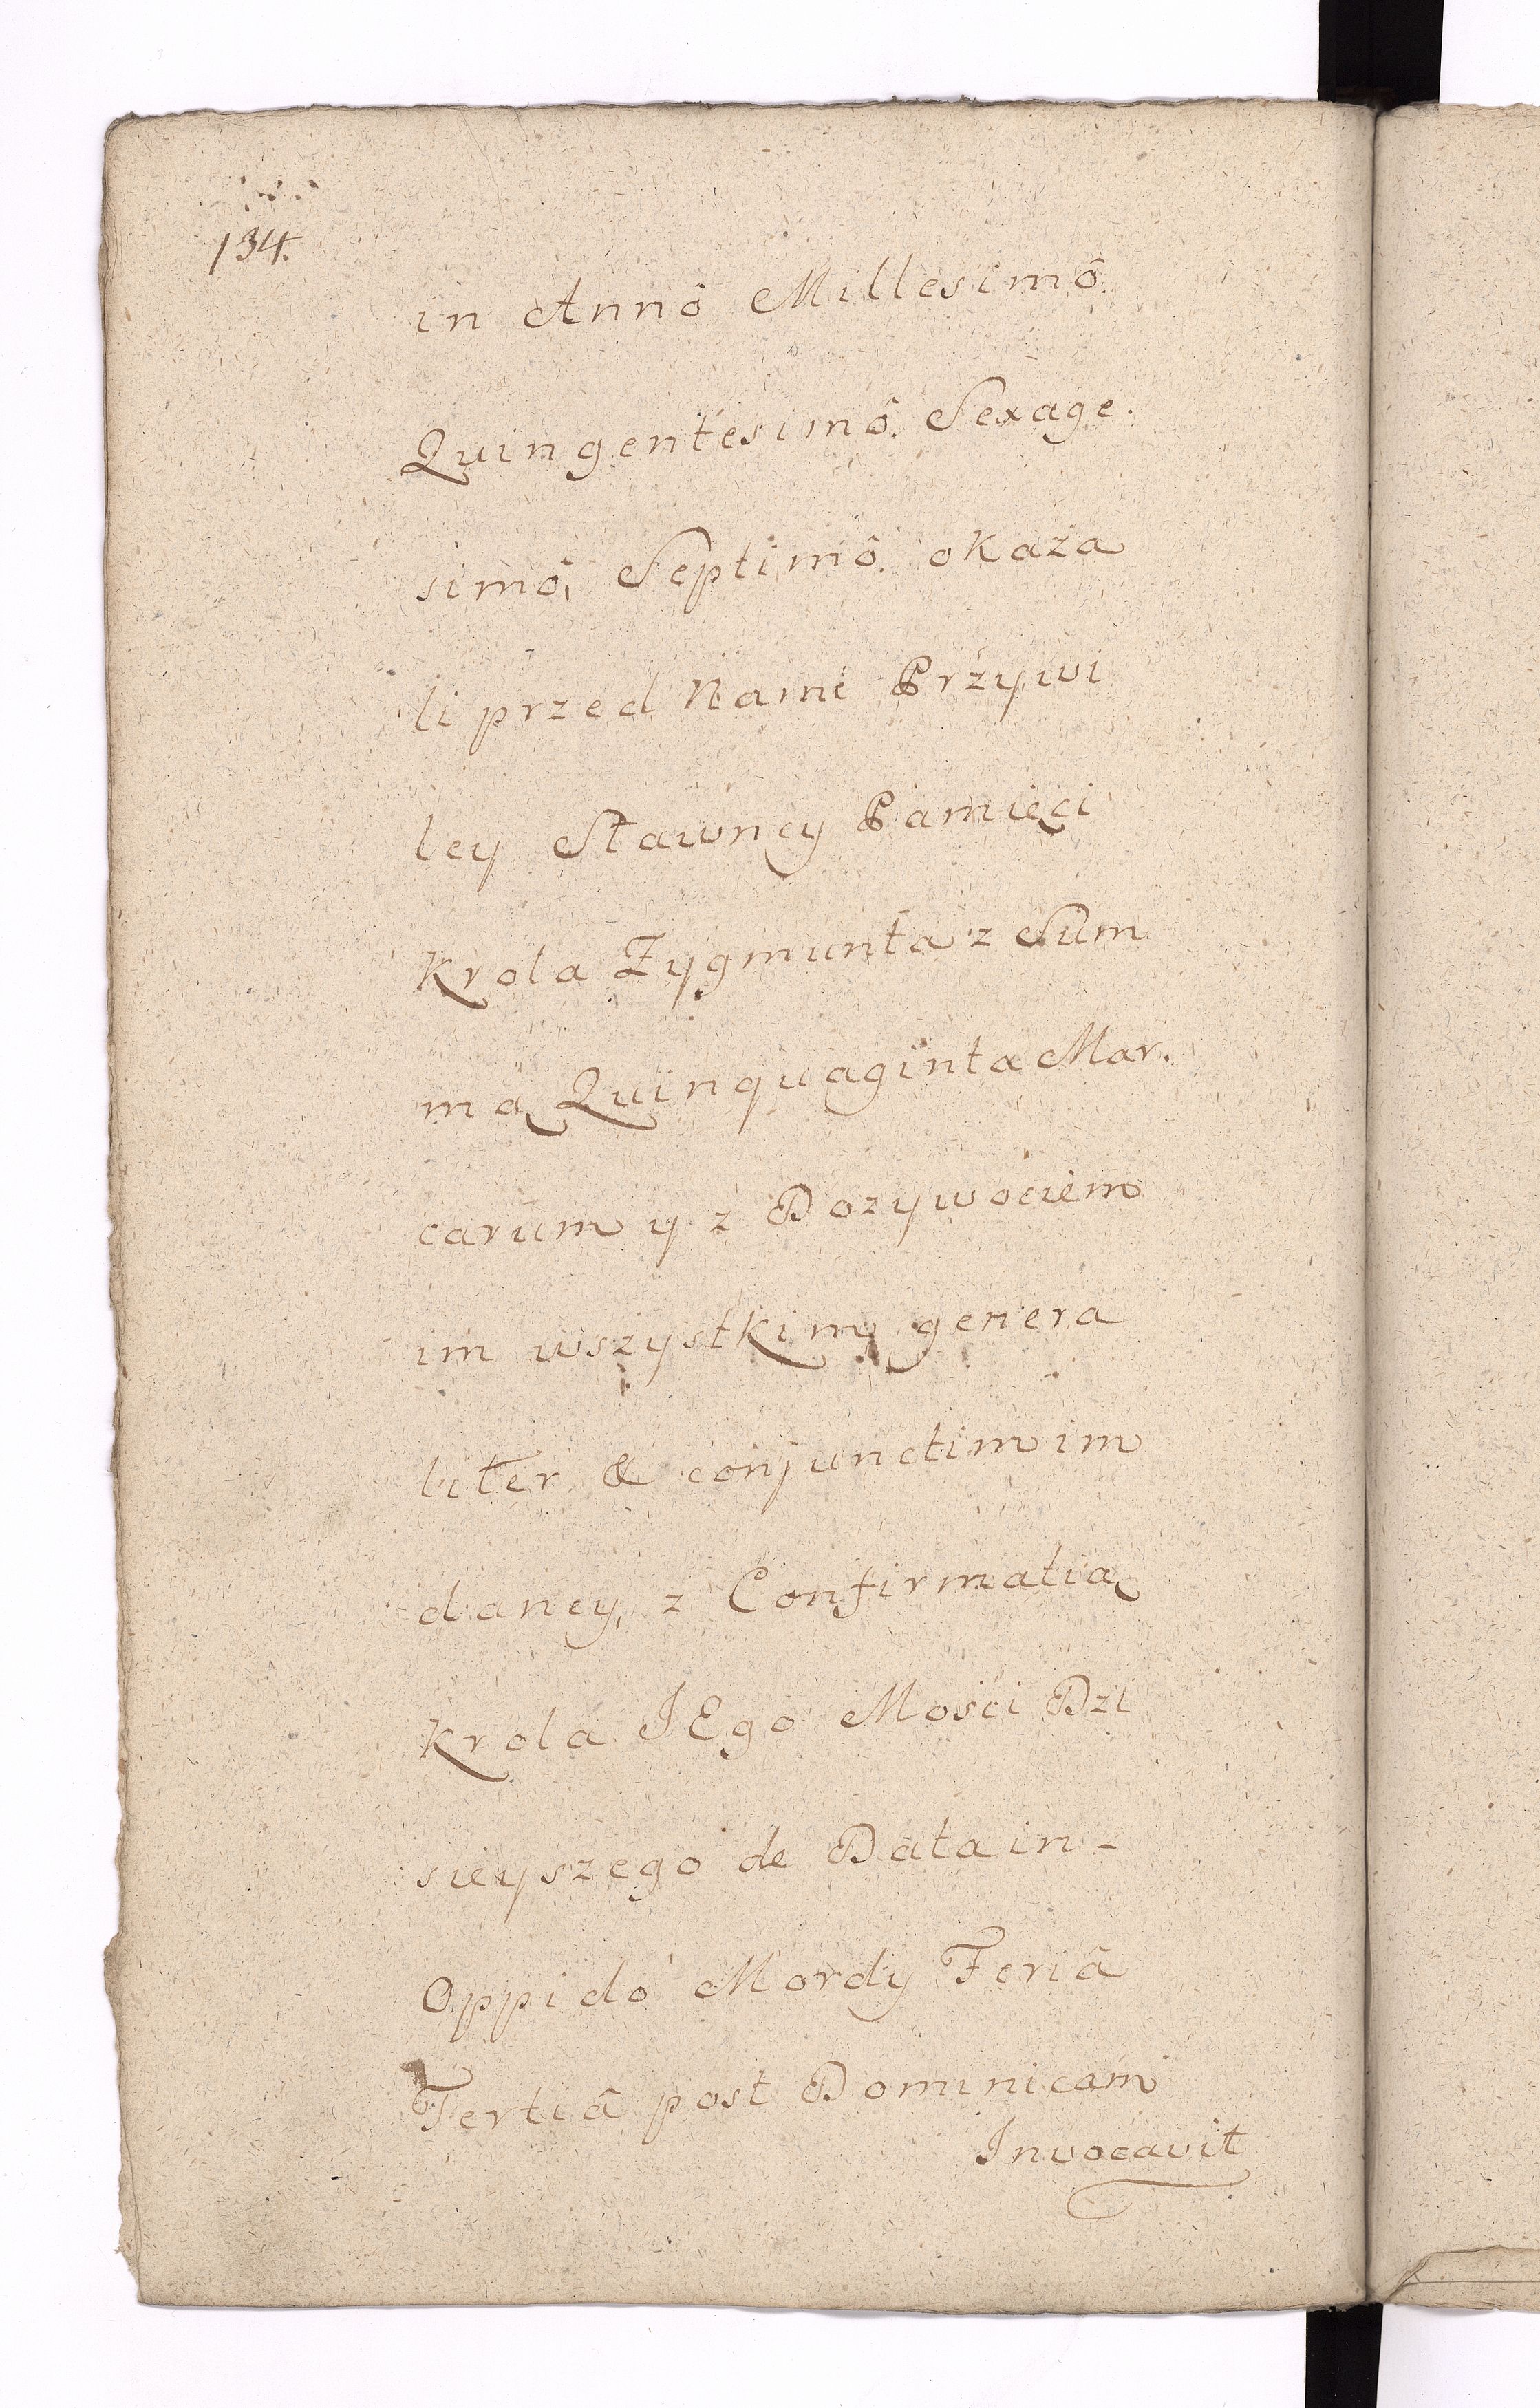 134.
in Annô Millesimô.
Quingentesimô. Sexage.
simô, Septimô. okaza
li przed Nami Przywi
ley Sławney Pamięci
Krola Zygmunta z Sum
mą Quinquaginta Mar.
carum y z Dozywociem
im wszystkim genera
liter & conjunctim im
daney, z Confirmatią
Krola JEgo Mosci Dzi
sieyszego de Data in -
Oppidó Mordy Feriâ
Tertiâ post Dominicam
Invocavit